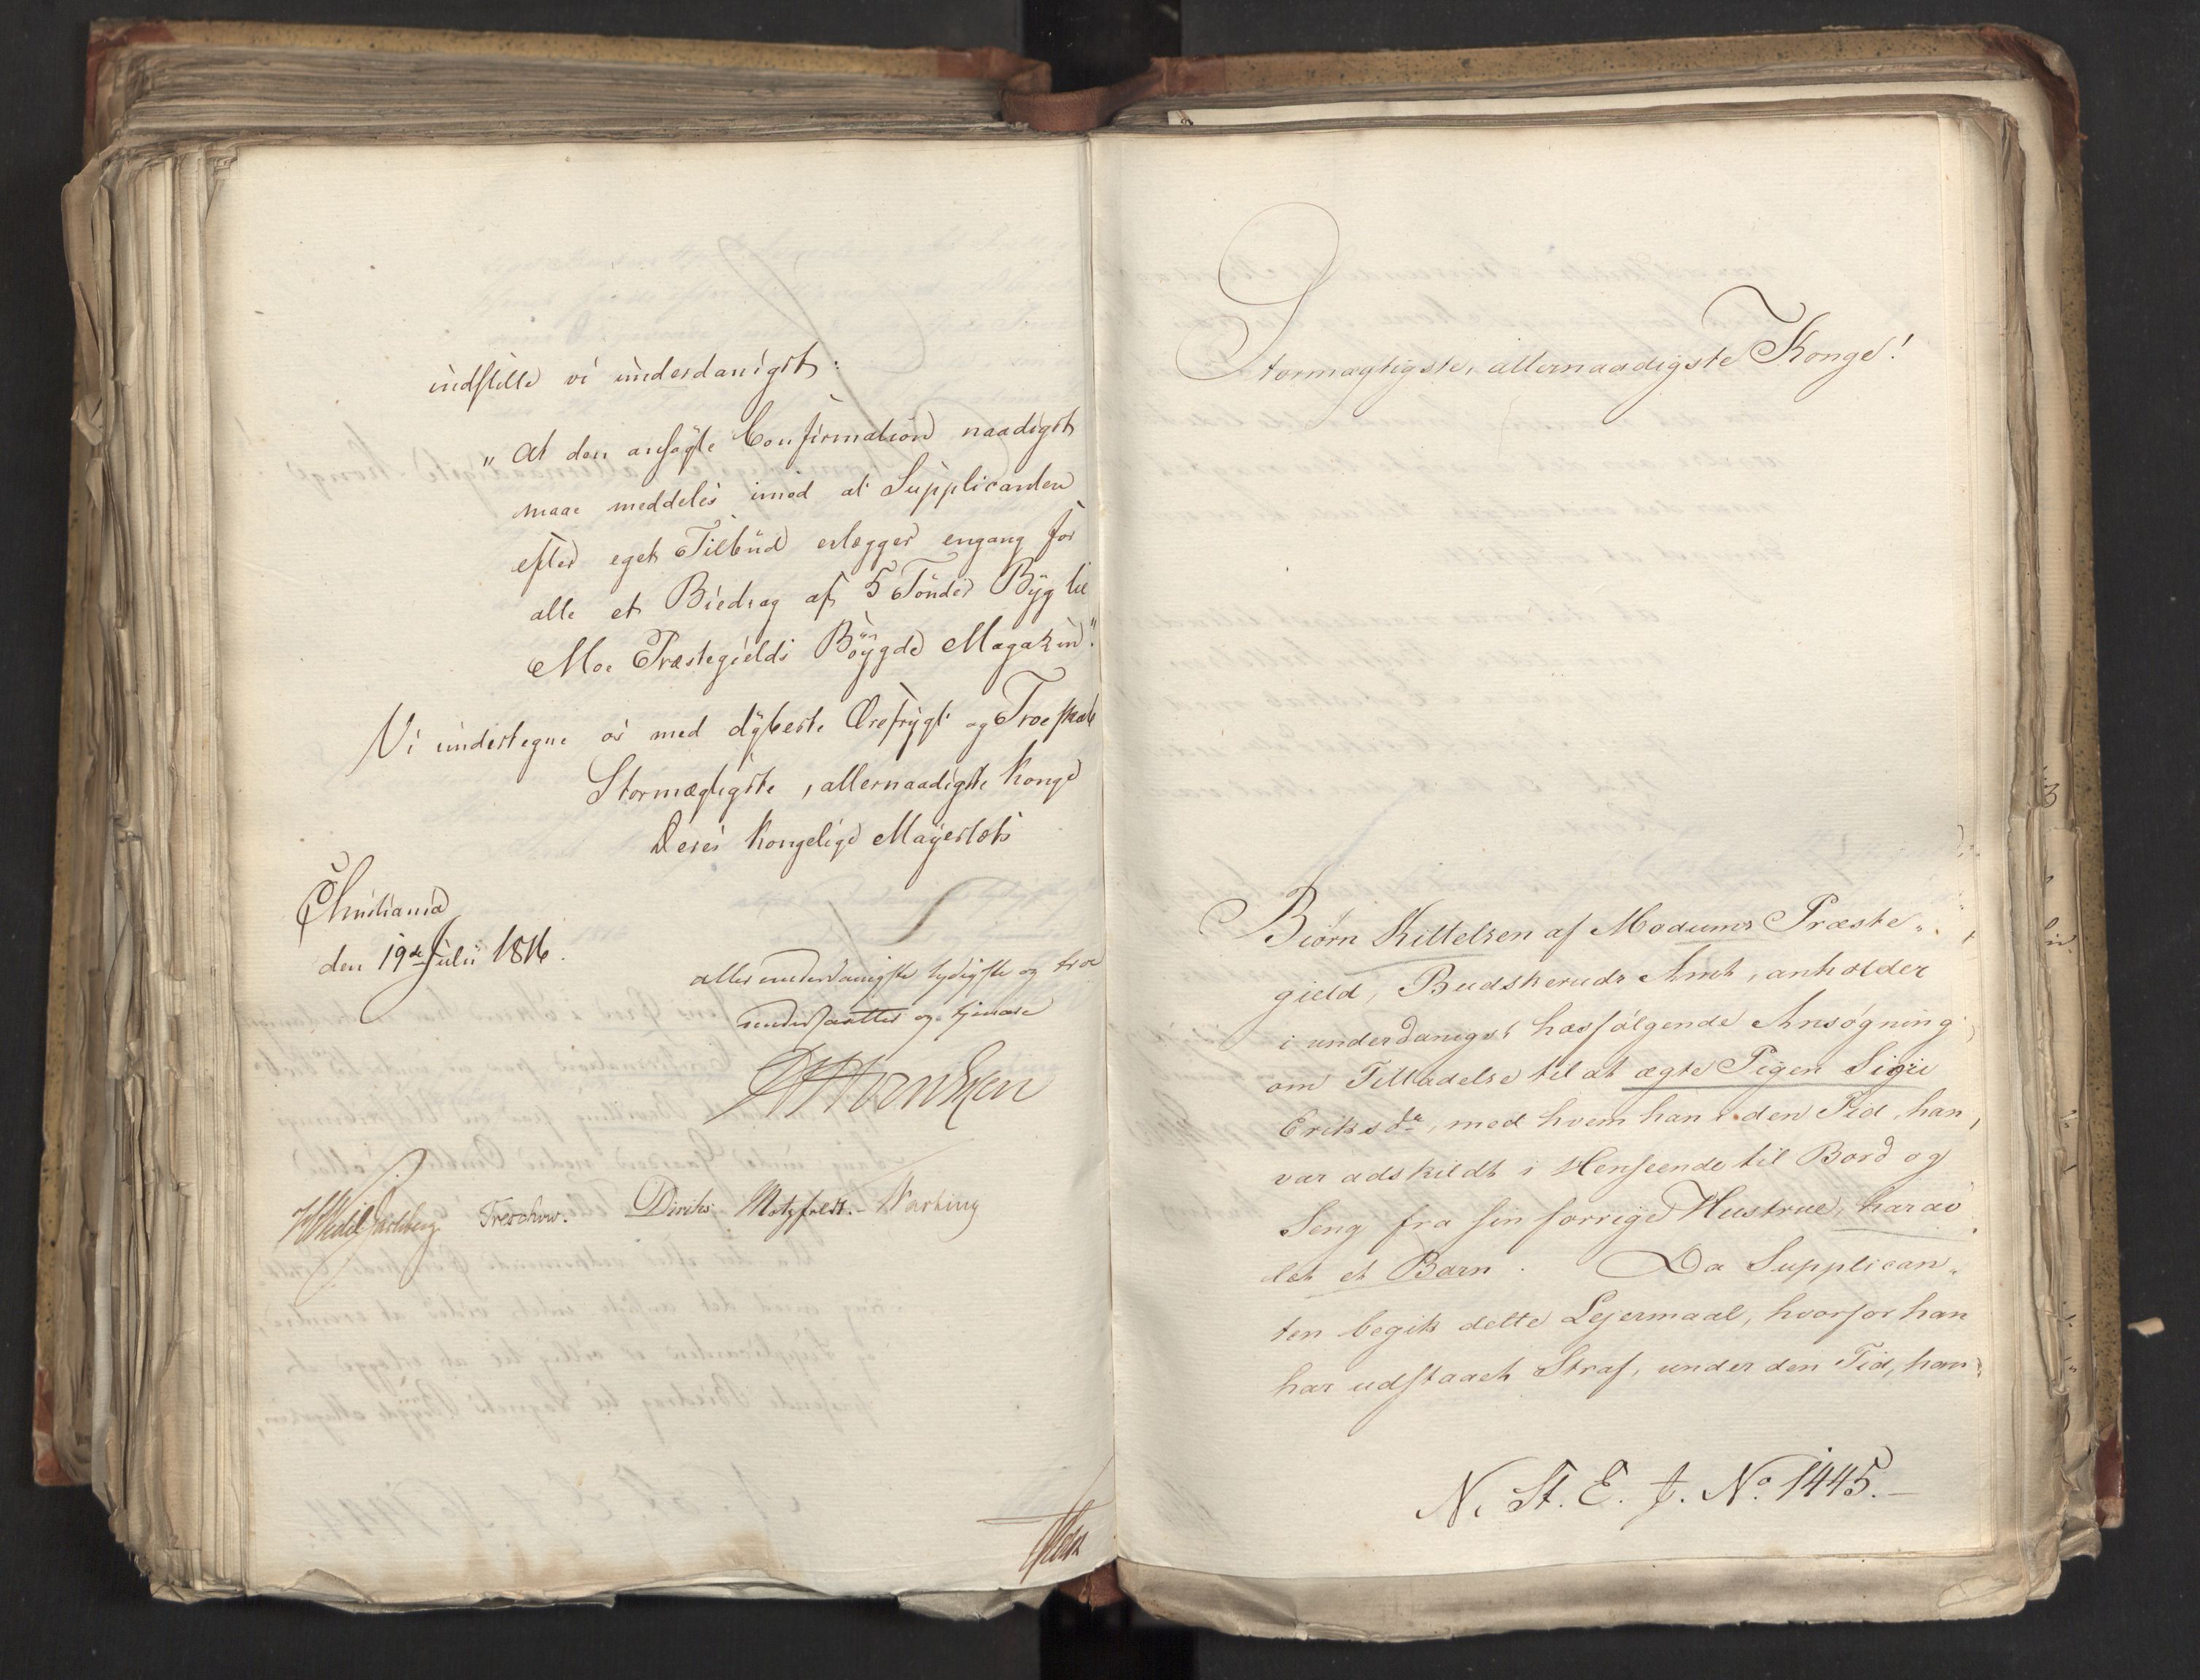 indstille vi underdanigst:
"At den ansøgte Confirmation naadigst
maae meddeles imod at Supplicanten
efter eget Tilbud erlægger engang for
alle et Biedrag af 5 Tønder Byg til
Moe Præstegields Bøygde Magazin."
Vi undertegne os med dybeste Ærefrygt og Troeskab
Stormægtigste, allernaadigste Konge
Deres Kongelige Mayestæts
Christiania
den 19de Julii 1816.
allerunderdanigste lydigste og troe
undersaatter og tjenere
Treschow. Diriks Motzfeldt.
Stormægtigste, allernaadigste Konge!
Biørn Kittelsen af Modums Præste-
gield, Budskeruds Amt, anholder
i underdanigst hosfølgende Ansøgning
om Tilladelse til at ægte Pigen Sigri
Eriksdr, med hvem han i den Tid, han
var adskildt i Henseende til Bord og
Seng fra sin forrige Hustrue, har av-
let et Barn. Da Supplican-
ten begik dette Lejermaal, hvorfor han
har udstaaet Straf, under den Tid, han
N. St. E. J. No. 1445.